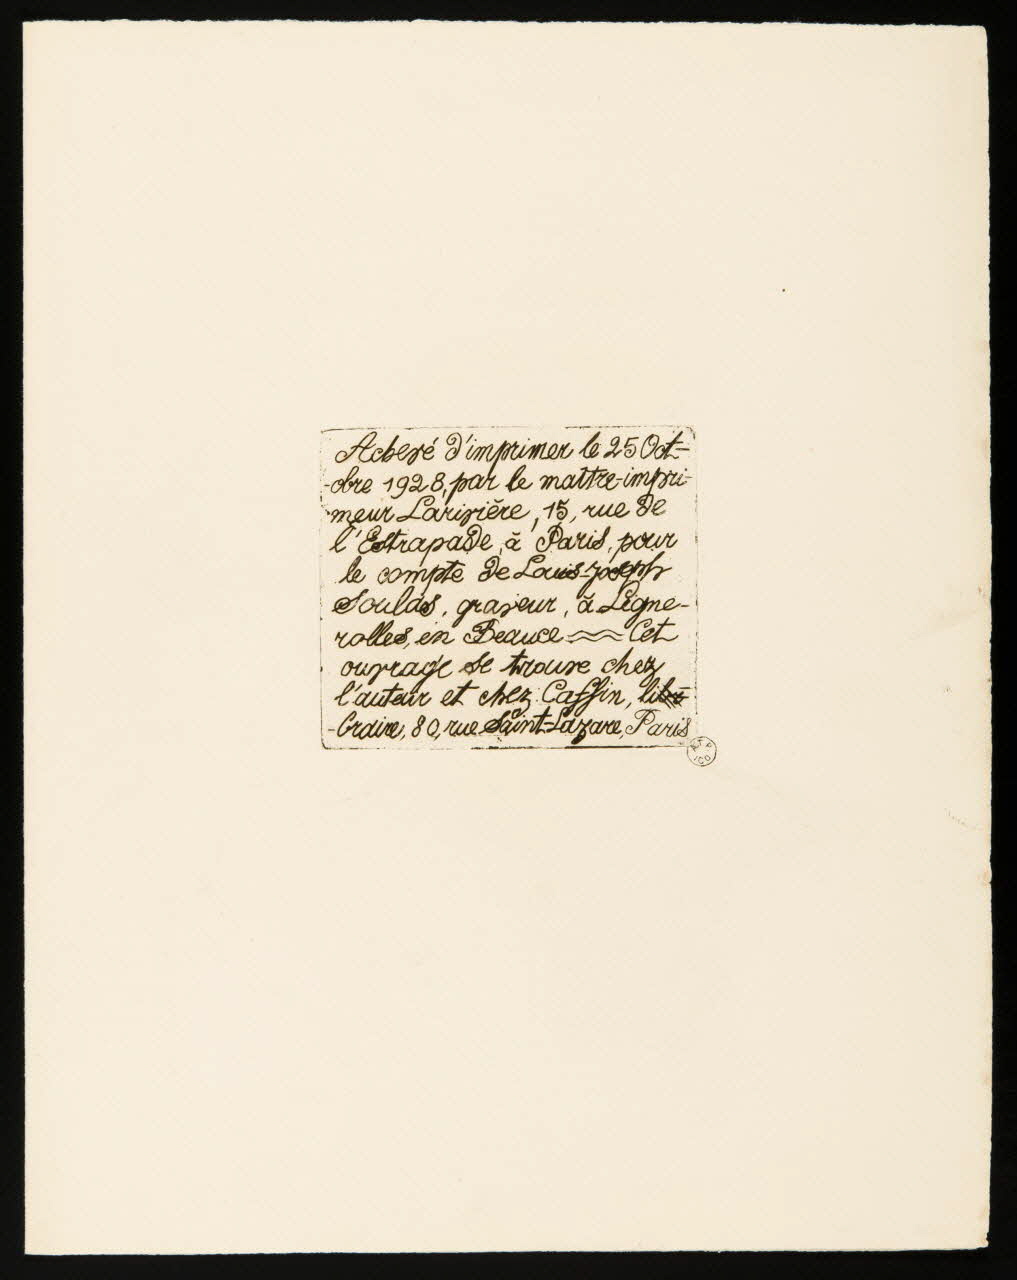 Achevé d'imprimer le 25 Oct-
-obre 1928, par le maître-impri-
meur Larivière, 15, rue de
l'Estrapade, à Paris, pour
le compte de Louis-Joseph
Soulas, graveur, à Ligne-
rolles, en Beauce Cet
ouvrage se trouve chez
l'auteur et chez Caffin, li
-braire, 80, rue Saint-Lazare, Paris
ATP
ICO